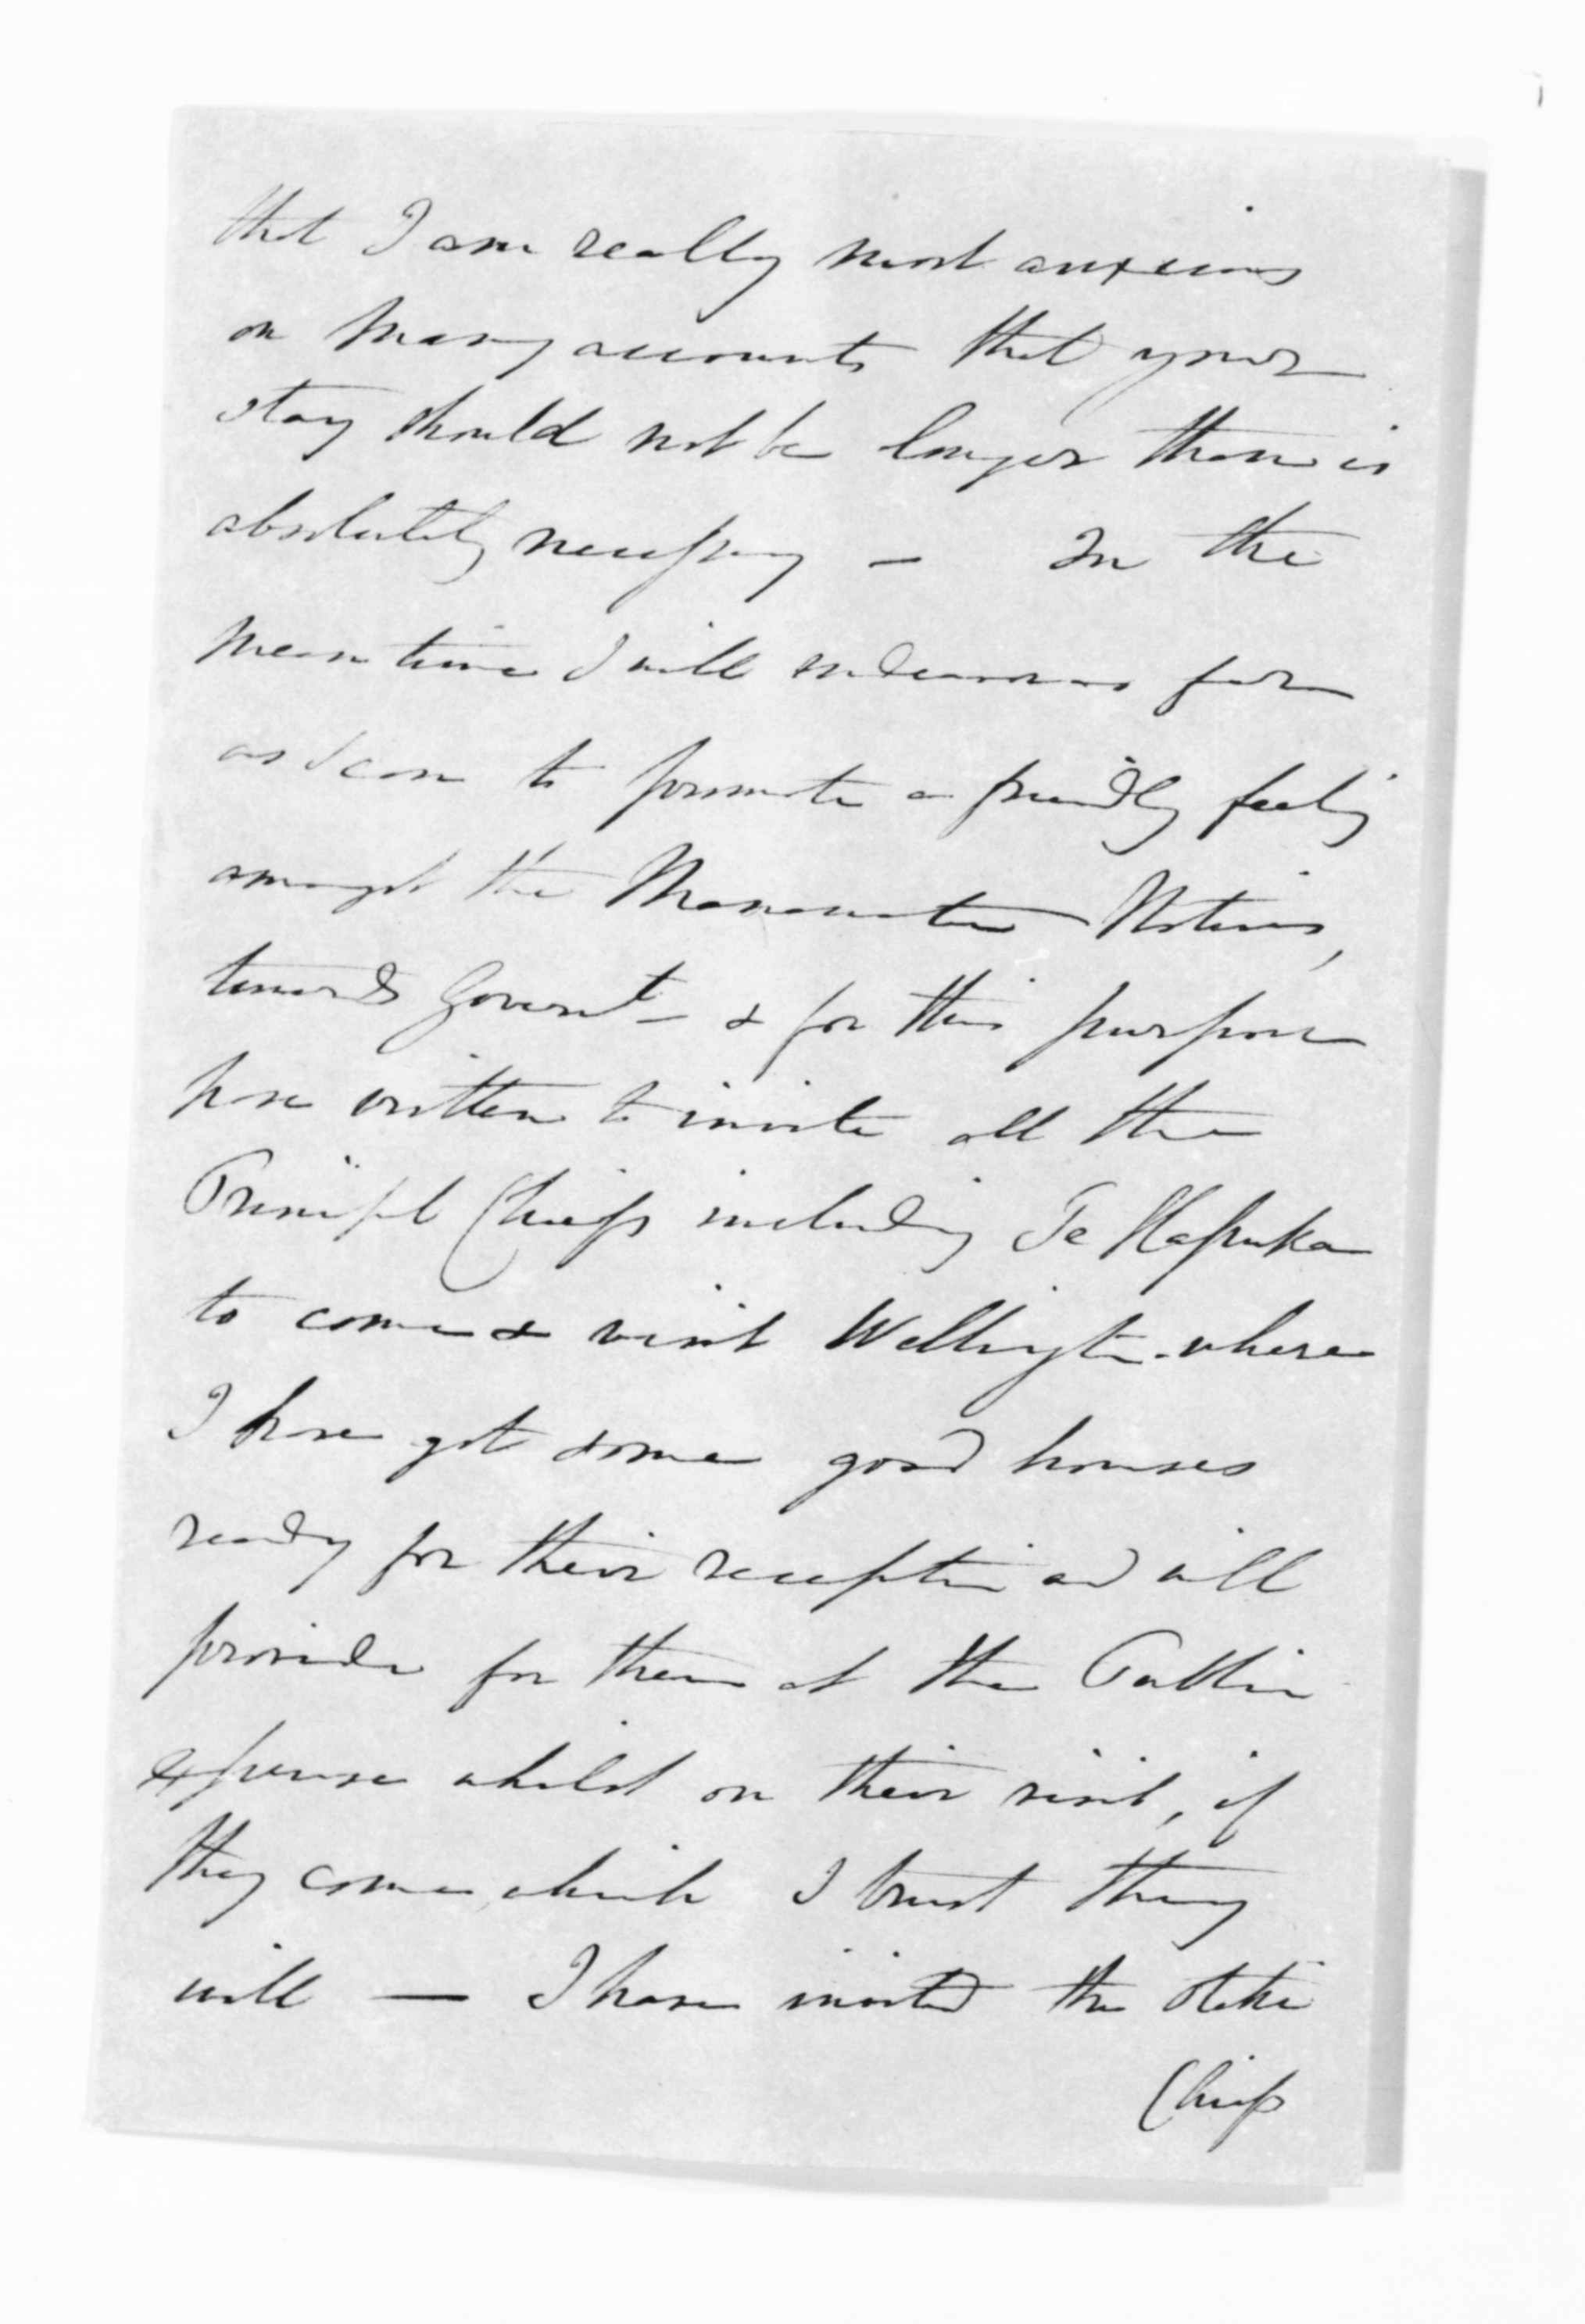 that I am really most anxious
on many accounts that your
stay should not be longer than is
absolutely necessary — In the
mean time I will endeavour as far
as I can to promote a friendly feeling
amongst the Manawatu Natives,
towards Governt - & for this purpose
have written to invite all the
Principl Chiefs including Te Hapuka
to come & visit Wellington - where
I have got some good houses
ready for their reception and will
provide for them at the Public
expense whilst on their visit, if
they come, which I trust they
will — I have invited the Otaki
Chiefs